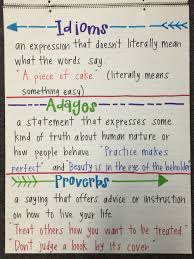 Idioms
an expression that doesn't literally mean
what the words say.
"A piece of cake" (literally means
something easy)
Adages
a statement that expresses some
kind of truth about human nature or
how people behave "Practice makes
perfect" and "Beauty is in the eye of the beholder"
Proverbs
a saying that offers advice or instruction
on how to live your life.
"Treat others how you want to be treated."
"Don't judge a book by its cover."